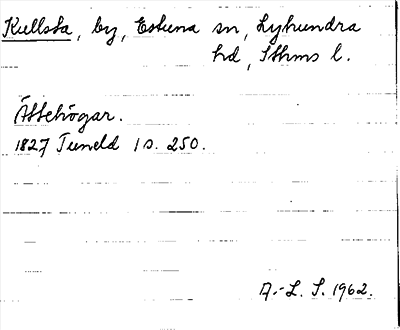 Kullsta, by, Estuna sn, Lyhundra
hd, Sthms l.
Ättehögar.
1827 Tuneld 1 s. 250.
A.-L. S. 1962.